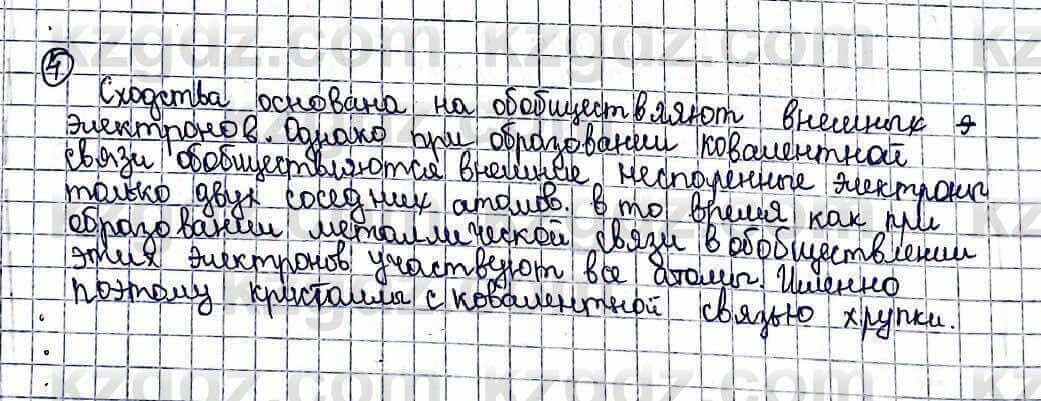 4
Сходства основана на обобществляют внешних э
электронов. Однако при образовании ковалентной
связи обобществляются внешние, неспоренные электроны
только двух соседних атомов. в то время как при
образовании металлической связи в обобществлении
этих электронов участвуют все атомы. Именно
поэтому кристаллы с ковалентной связью хрупки.